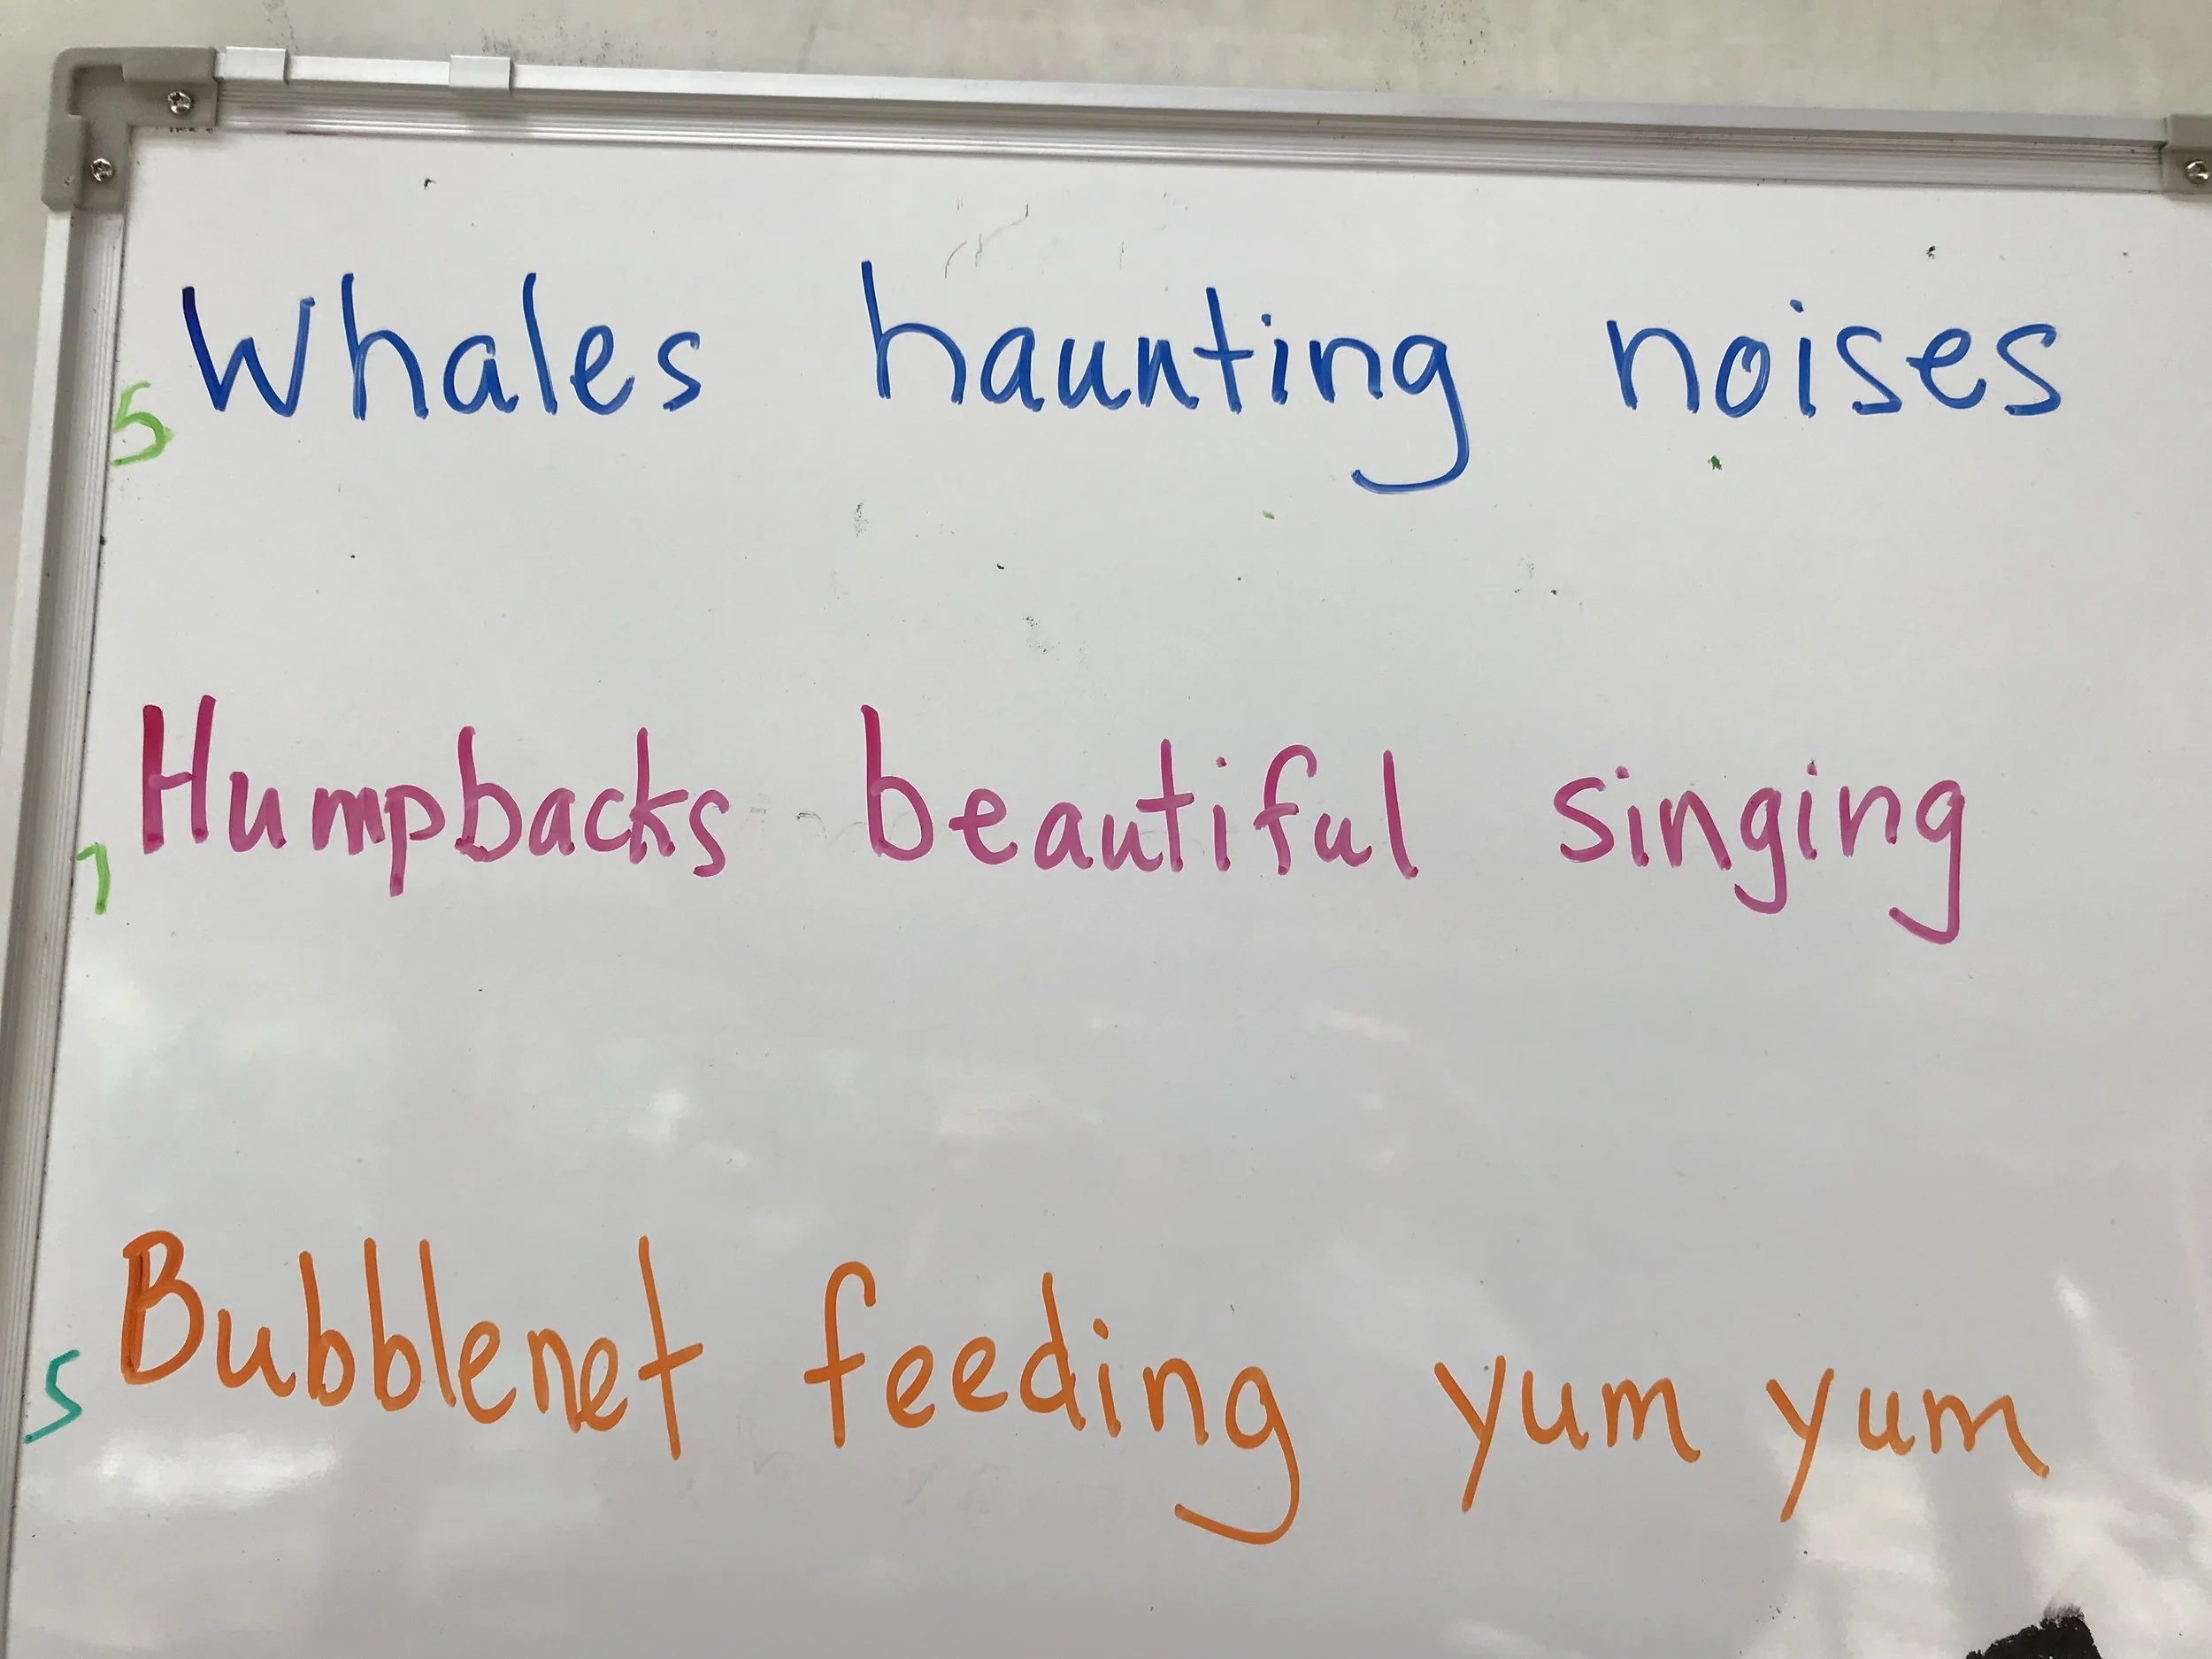 5 Whales haunting noises
7 Humpbacks beautiful singing
5 Bubblenet feeding yum yum